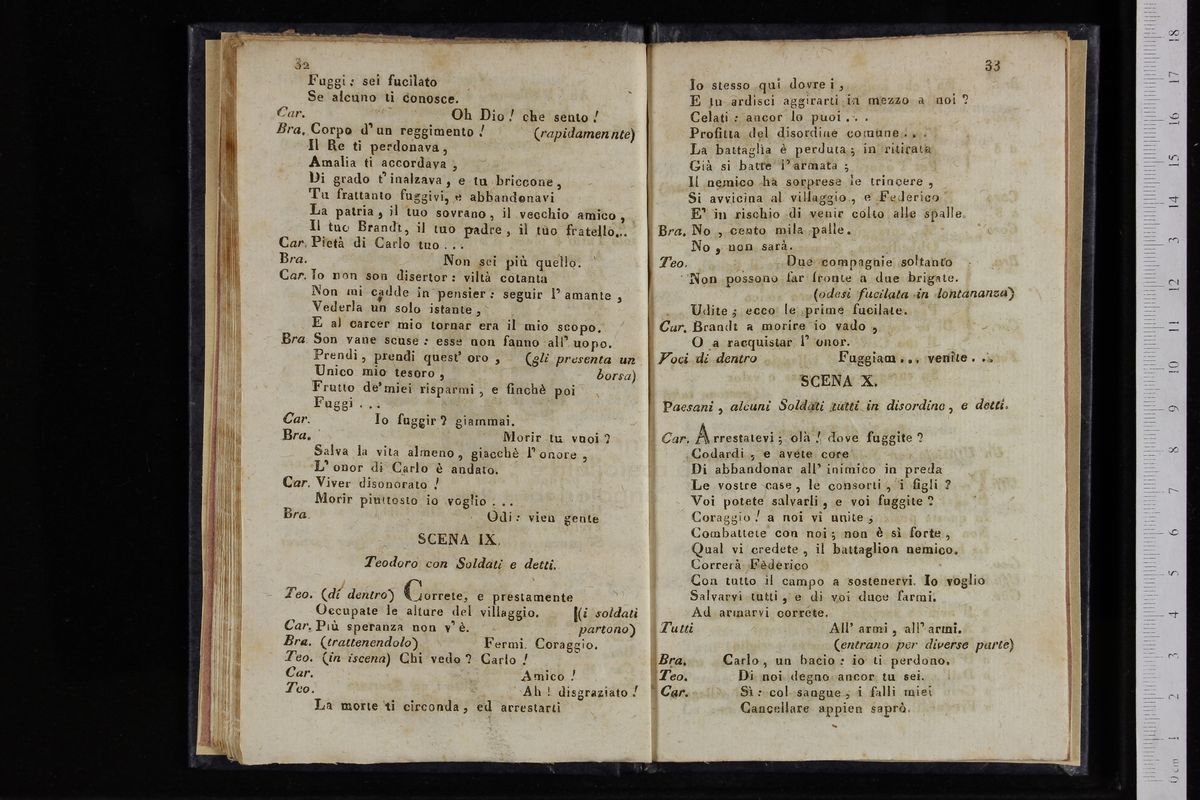 32
Fuggi : sei fucilato
Se alcuno ti conosce.
Car. Oh Dio ! che sento !
Bra. Corpo d' un reggimento ! (rapidamennte)
Il Re ti perdonava,
Amalia ti accordava ,
Di grado t' inalzava , e tu briccone,
Tu frattanto fuggivi, e abbandonavi
La patria , il tuo sovrano , il vecchio amico ,
Il tuo Brandt, il tuo padre , il tuo fratello...
Car. Pietà di Carlo tuo . . .
Bra. Non sei più quello.
Car. Io non son disertor : viltà cotanta
Non mi cadde in pensier : seguir l' amante ,
Vederla un solo istante ,
E al carcer mio tornar era il mio scopo.
Bra. Son vane scuse : esse non fanno all' uopo.
Prendi , prendi quest' oro , (gli presenta un
Unico mio tesoro , borsa)
Frutto de' miei risparmi , e finchè poi
Fuggi . . .
Car. Io fuggir ? giammai.
Bra. Morir tu vuoi ?
Salva la vita almeno , giacchè l' onore ,
L' onor di Carlo è andato.
Car. Viver disonorato !
Morir piuttosto io voglio . . .
Bra. Odi : vien gente
SCENA IX.
Teodoro con Soldati e detti.
Teo. (di dentro) Correte, e prestamente
Occupate le alture del villaggio. (i soldati
Car. Più speranza non v' è. partono)
Bra. (trattenendolo) Fermi. Coraggio.
Teo. (in iscena) Chi vedo ? Carlo !
Car. Amico !
Teo. Ah ! disgraziato !
La morte ti circonda , ed arrestarti
33
Io stesso qui dovrei ,
E tu ardisci aggirarti in mezzo a noi ?
Celati : ancor lo puoi . . .
Profitta del disordine comune . . .
La battaglia è perduta ; in ritirata
Già si batte l' armata ;
Il nemico ha sorprese le trincere ,
Si avvicina al villaggio , e Federico
E' in rischio di venir colto alle spalle.
Bra. No , cento mila palle.
No , non sarà.
Teo. Due compagnie soltanto
Non possono far fronte a due brigate.
(odesi fucilata in lontananza)
Udite ; ecco le prime fucilate.
Car. Brandt a morire io vado ,
O a racquistar l' onor.
Voci di dentro Fuggiam . . . venite . . .
SCENA X.
Paesani , alcuni Soldati tutti in disordine , e detti.
Car. Arrestatevi ; olà ! dove fuggite ?
Codardi , e avete core
Di abbandonar all' inimico in preda
Le vostre case , le consorti , i figli ?
Voi potete salvarli , e voi fuggite ?
Coraggio ! a noi vi unite ;
Combattete con noi ; non è sì forte ,
Qual vi credete , il battaglion nemico.
Correrà Fèderico
Con tutto il campo a sostenervi. Io voglio
Salvarvi tutti , e di voi duce farmi.
Ad armarvi correte.
Tutti All' armi , all' armi.
(entrano per diverse parte)
Bra. Carlo , un bacio : io ti perdono.
Teo. Di noi degno ancor tu sei.
Car. Sì : col sangue , i falli miei
Cancellare appien saprò.
0 cm 1 2 3 4 5 6 7 8 9 10 11 12 13 14 15 16 17 18